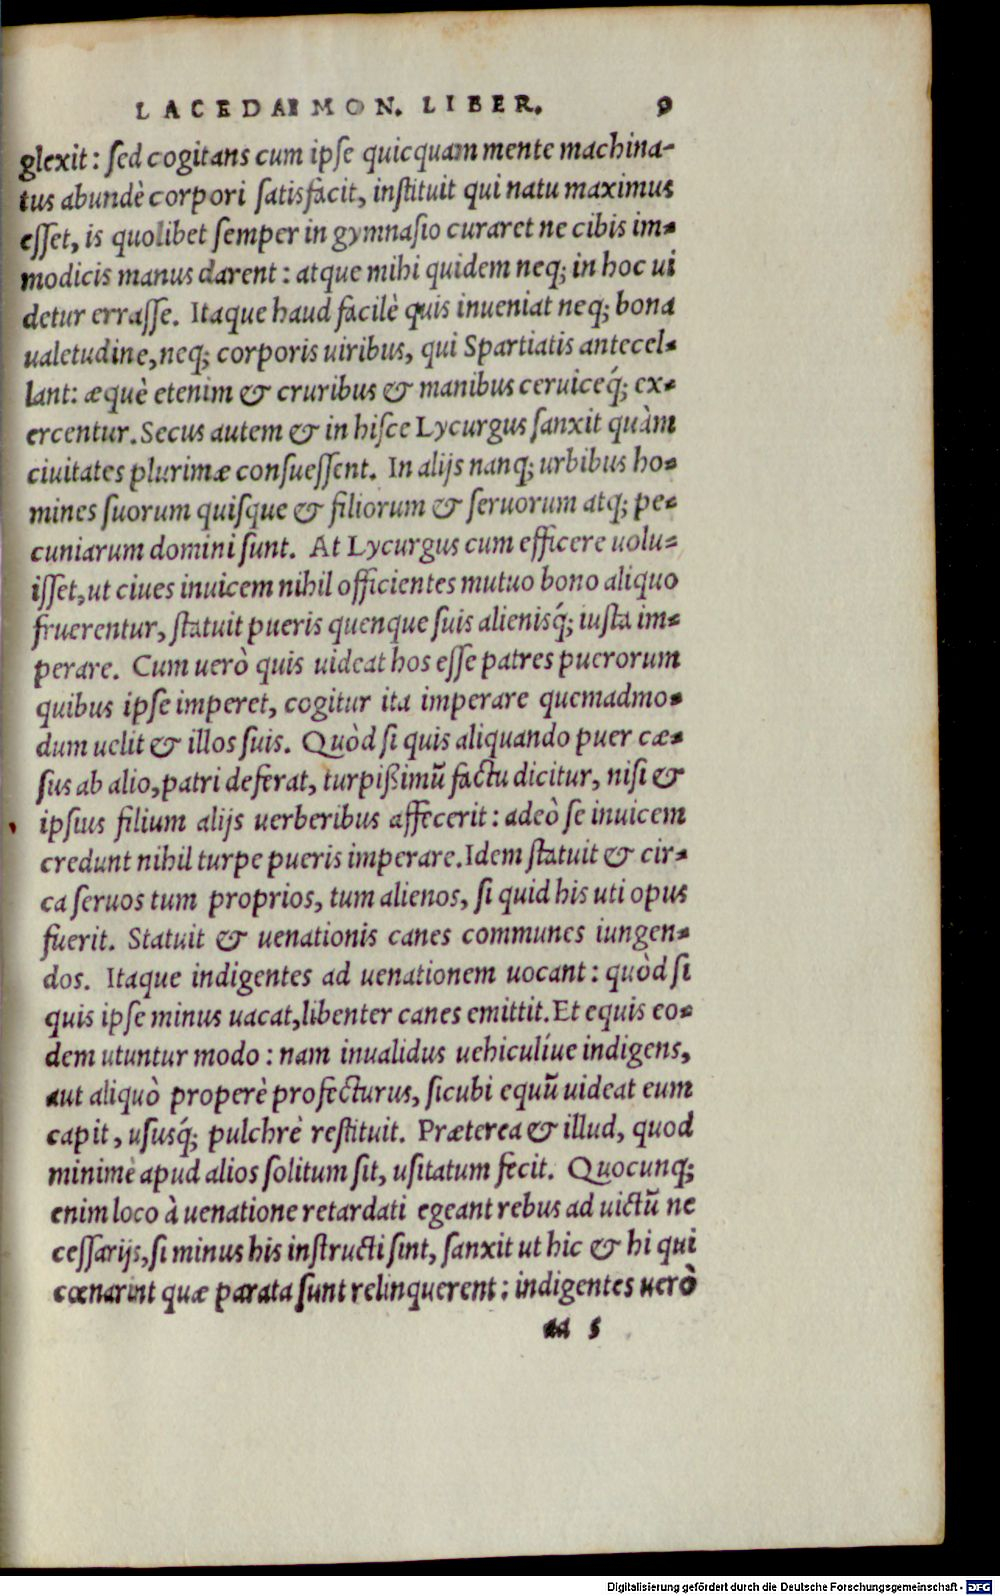 LACEDAEMON. LIBER. 9
glexit: sed cogitans cum ipse quicquam mente machina-
tus abundè corpori satisfacit, instituit qui natu maximus
esset, is quolibet semper in gymnasio curaret ne cibis im-
modicis manus darent: atque mihi quidem neq; in hoc ui
detur errasse. Itaque haud facilè quis inueniat neq; bona
ualetudine, neq; corporis uiribus, qui Spartiatis antecel-
lant: æquè etenim & cruribus & manibus ceruiceq́; ex-
ercentur. Secus autem & in hisce Lycurgus sanxit quàm
ciuitates plurimæ consuessent. In alijs nanq; urbibus ho-
mines suorum quisque & filiorum & seruorum atq; pe-
cuniarum domini sunt. At Lycurgus cum efficere uolu-
isset, ut ciues inuicem nihil officientes mutuo bono aliquo
fruerentur, statuit pueris quenque suis alienisq́; iusta im-
perare. Cum uerò quis uideat hos esse patres puerorum
quibus ipse imperet, cogitur ita imperare quemadmo-
dum uelit & illos suis. Quòd si quis aliquando puer cæ-
sus ab alio, patri deferat, turpißimū factu dicitur, nisi &
ipsius filium alijs uerberibus affecerit: adeò se inuicem
credunt nihil turpe pueris imperare. Idem statuit & cir-
ca seruos tum proprios, tum alienos, si quid his uti opus
fuerit. Statuit & uenationis canes communes iungen-
dos. Itaque indigentes ad uenationem uocant: quòd si
quis ipse minus uacat, libenter canes emittit. Et equis eo-
dem utuntur modo: nam inualidus uehiculíue indigens,
aut aliquò properè profecturus, sicubi equū uideat eum
capit, ususq́; pulchrè restituit. Præterea & illud, quod
minimè apud alios solitum sit, usitatum fecit. Quocunq;
enim loco à uenatione retardati egeant rebus ad uictū ne
cessarijs, si minus his instructi sint, sanxit ut hic & hi qui
cœnarint quæ parata sunt relinquerent: indigentes uerò
aa 5
Digitalisierung gefördert durch die Deutsche Forschungsgemeinschaft - DFG